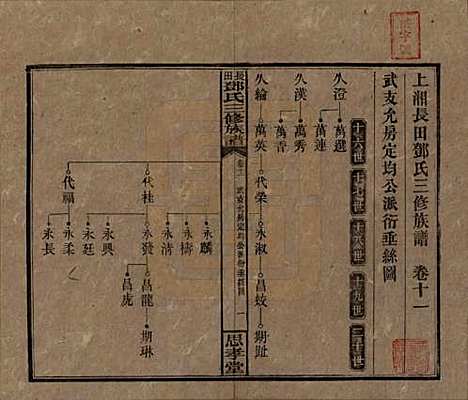 上湘長田鄧氏三修族譜 卷十一
武支允房定均公派衍垂絲圖
十六世
十七世
十八世
十九世
二十世
久澄
萬選
萬連
久漢
萬秀
萬音
久綸
萬英
代榮
永淑
昌蛟
期趾
長田鄧氏三修族譜
卷十一
武支允房定均公派衍垂絲圖
一
思孝堂
代桂
永麟
永禱
永清
永發
昌龍
期琳
昌虎
代福
永興
永廷
永柔
永長